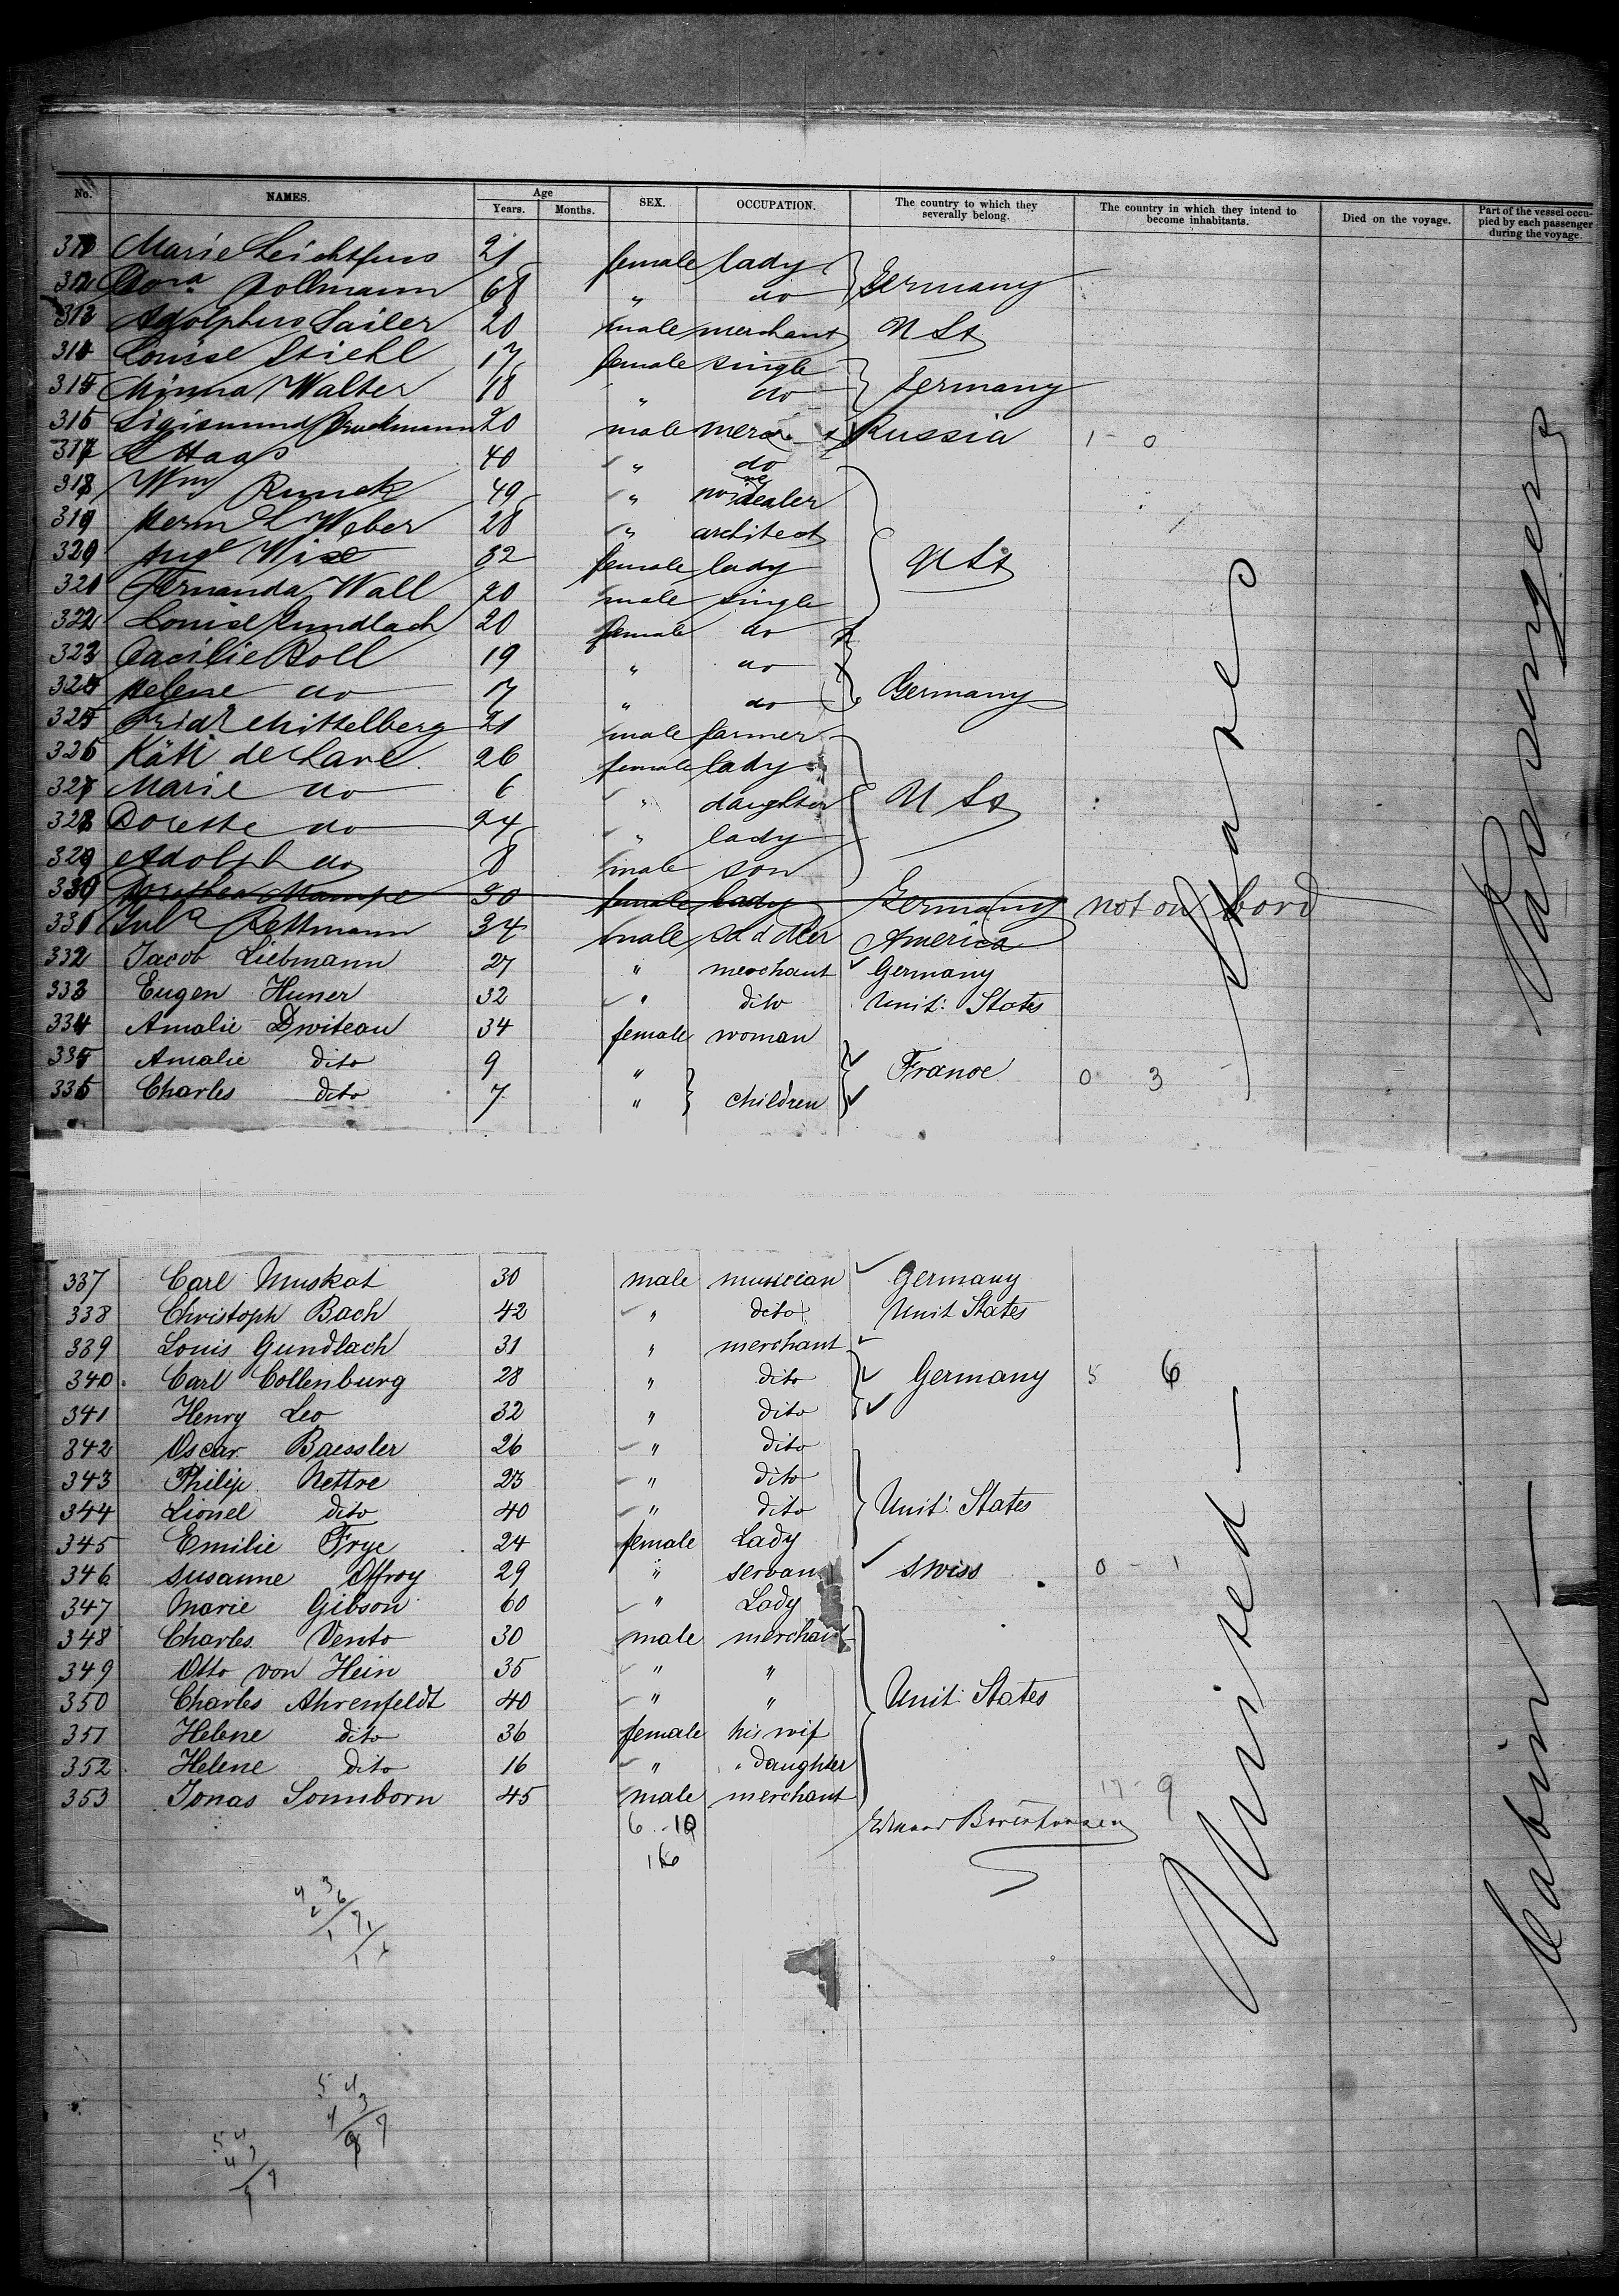 No. NAMES. Age Years. Months. SEX. OCCUPATION. The country to which they severally belong. The country in which they intend to become inhabitants. Died on the voyage. Part of the vessel occupied by each passenger during the voyage.
Marie Leichtfuss 21 female lady
Dora Vollmann 68 " do Germany
313 Adolphus Sailer 20 male merchant U St
314 Louise Stiehl 17 female single
315 Minna Walter 18 " do Germany
316 Sigismund Bruckmann 20 male merch. Russia 1 - 0
317 Haas 40 " do
318 Wm Runck 49 " dealer
319 Herm L Weber 28 " architect
320 Aug Wise 32 female lady U St
321 Fernanda Wall 20 male single
322 Louise Gundlach 20 female do
323 Cacilie Boll 19 " do
324 Helene do 17 " do Germany
325 Fridr Mittelberg 21 male farmer
326 Käti de Lave 26 female lady
327 Marie do 6 " daughter U St
328 Dorette do 24 " lady
329 Adolph do 8 male son
330 Dorothea Mampe 30 female lady Germany not on bord
331 Jul Rettmann 34 male saddler America
332 Jacob Liebmann 27 " merchant Germany
333 Eugen Huner 32 " dito Unit: States
334 Amalie Dwiteau 34 female woman
335 Amalie dito 9 " France 0 3
336 Charles dito 7 " children
337 Carl Muskat 30 male musician Germany
338 Christoph Bach 42 " dito Unit States
339 Louis Gundlach 31 " merchant
340 Carl Collenburg 28 " dito Germany 5 6
341 Henry Leo 32 " dito
342 Oscar Baessler 26 " dito
343 Philip Nettre 23 " dito
344 Lionel dito 40 " dito Unit: States
345 Emilie Frye 24 female Lady
346 Susanne Offroy 29 " servant swiss 0 - 1
347 Marie Gibson 60 " Lady
348 Charles Vento 30 male merchant
349 Otto von Hein 35 " "
350 Charles Ahrenfeldt 40 " " Unit: States
351 Helene dito 36 female his wif
352 Helene dito 16 " " daughter
353 Jonas Sonnborn 45 male merchant 17 - 9
6 - 10
16
United - States
Cabin - Passengers